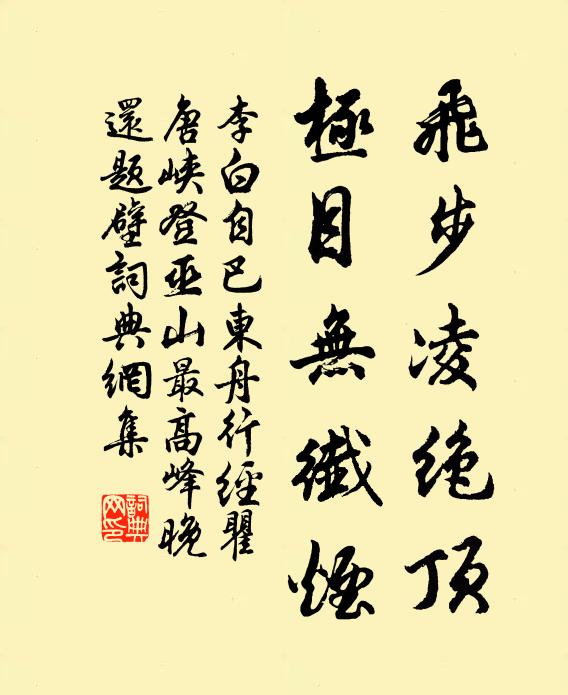 飛步凌絶頂
極目無纖煙
李白自巴東舟行經瞿
唐峽登巫山最高峰晚
還題壁詞典網集
詞典網印